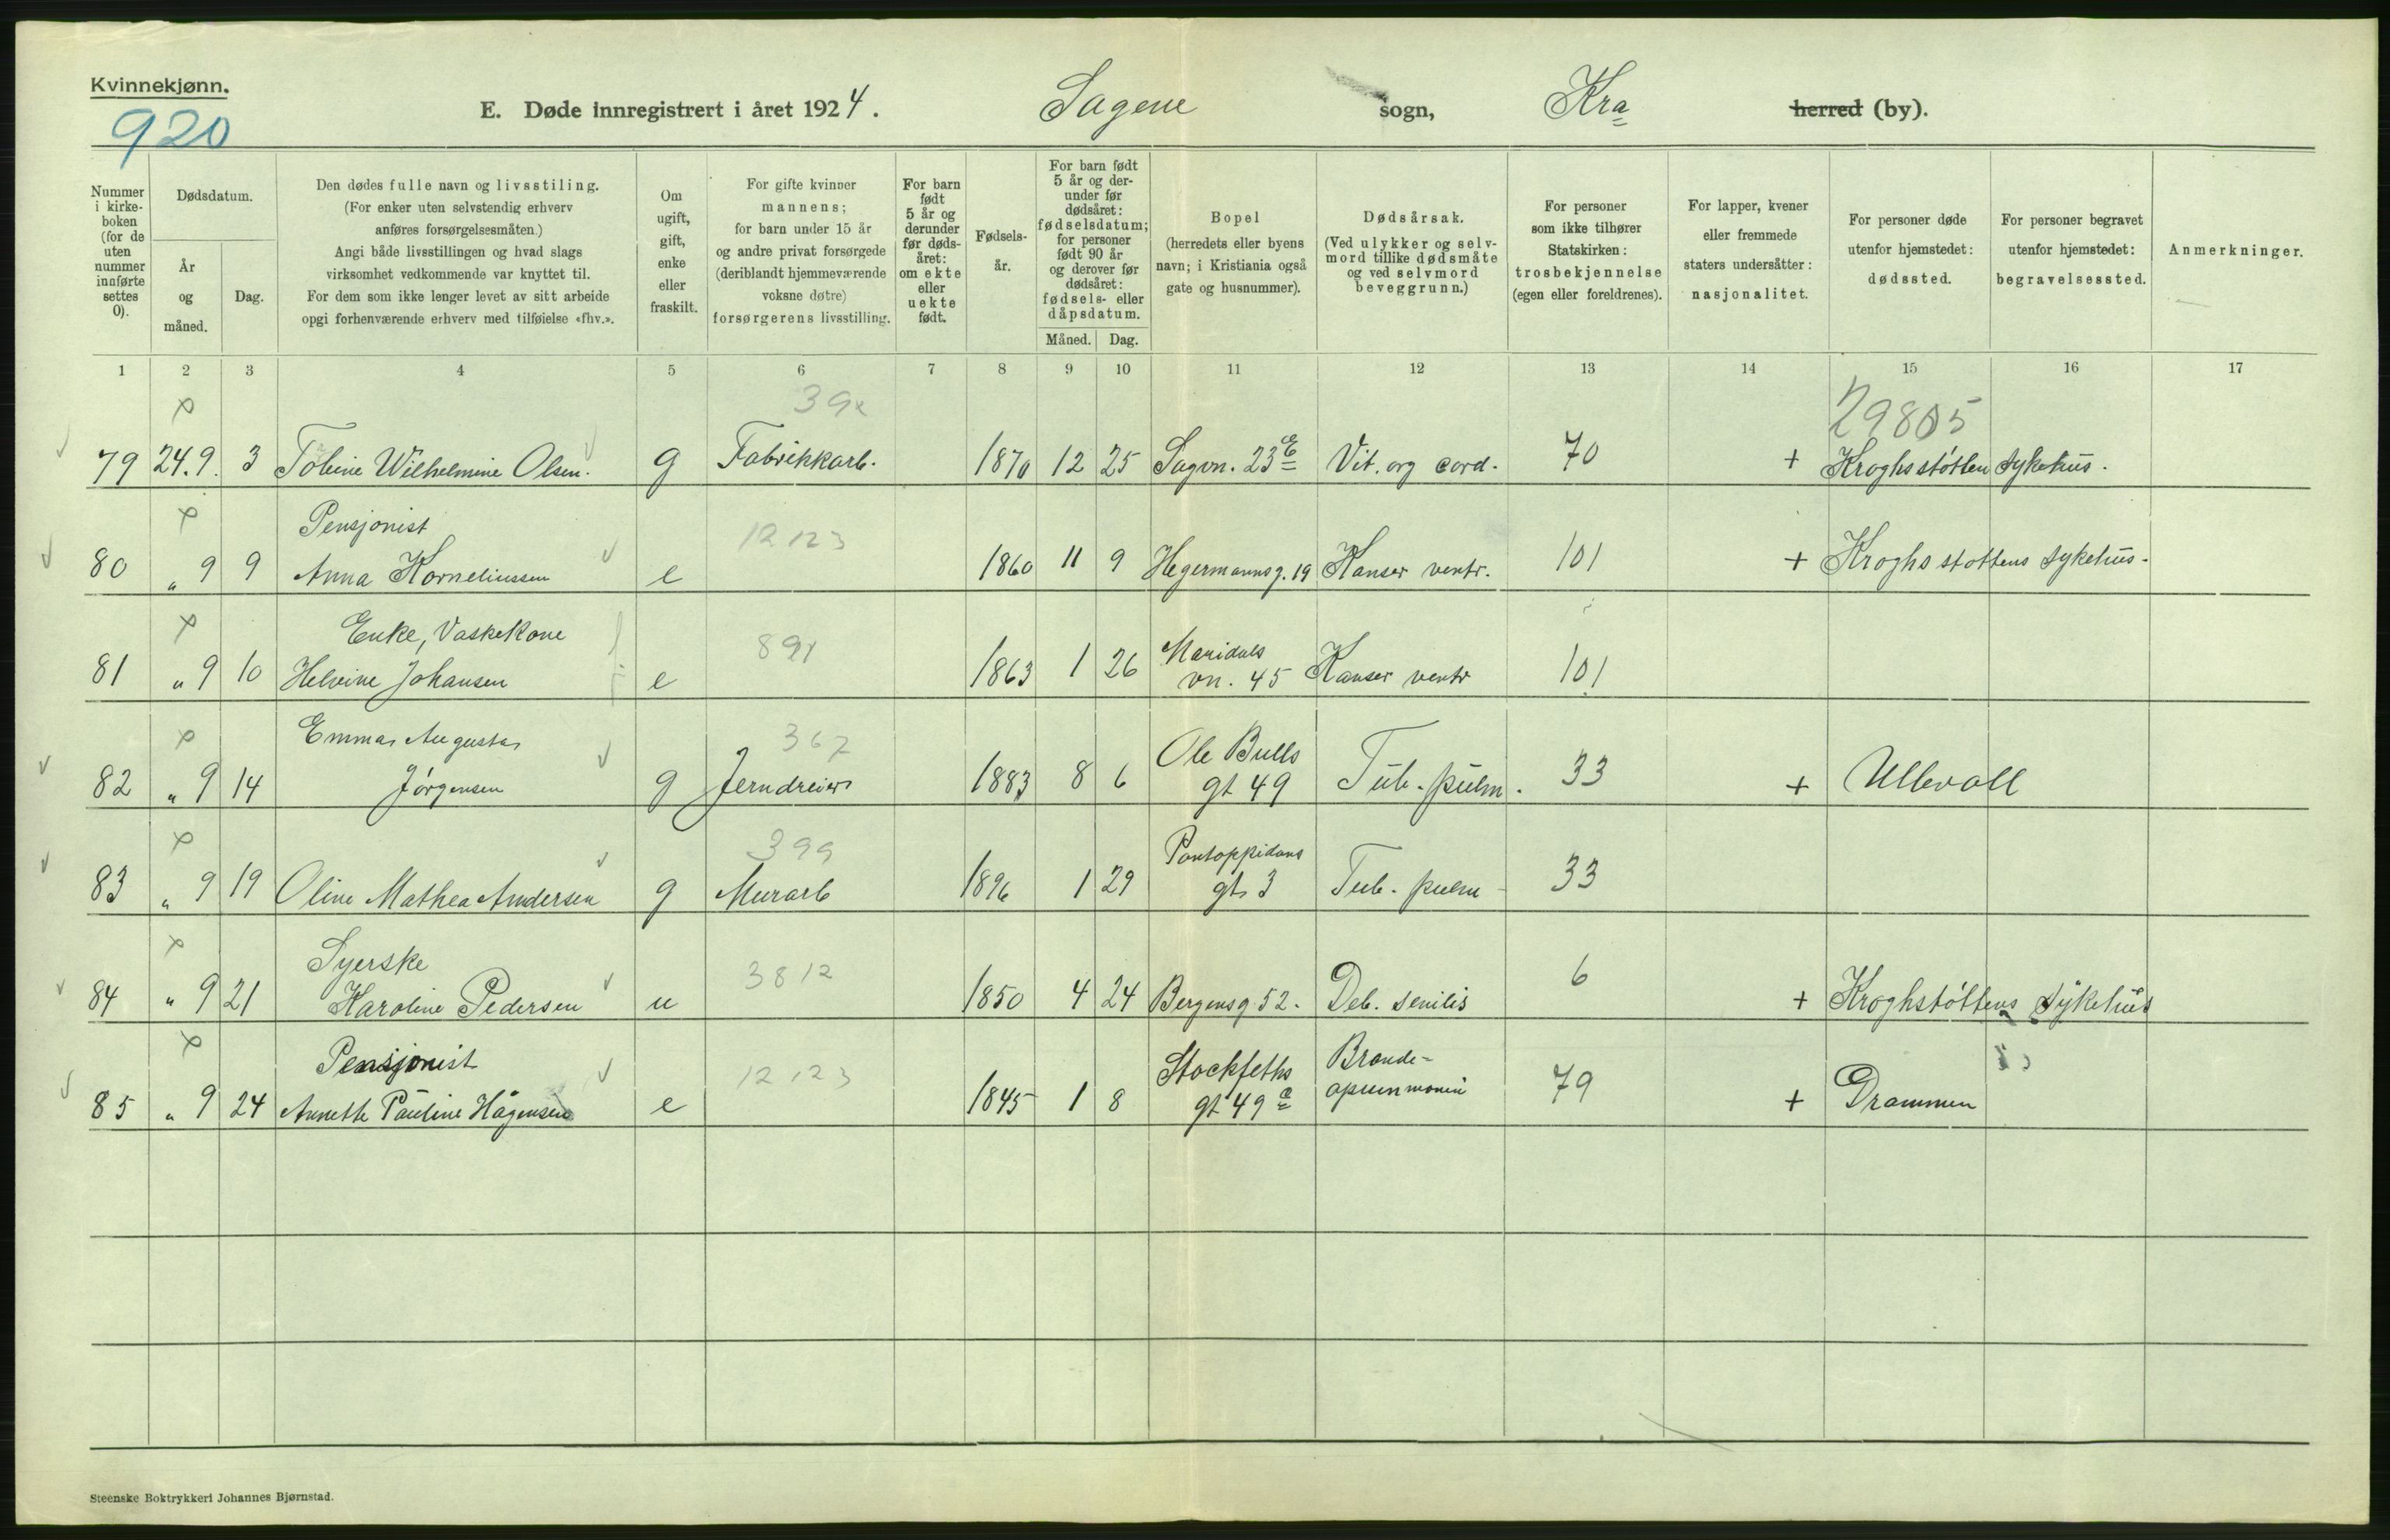 Kvinnekjønn.
920
E. Døde innregistrert i året 1924. Sagene sogn, Kra herred (by).
Nummer i kirke-boken (for de uten nummer innførte settes 0).
Dødsdatum.
År og måned.
Dag.
Den dødes fulle navn og livsstiling.
(For enker uten selvstendig erhverv
anføres forsørgelsesmåten.)
Angi både livsstillingen og hvad slags
virksomhet vedkommende var knyttet til.
For dem som ikke lenger levet av sitt arbeide
opgi forhenværende erhverv med tilføielse «fhv.».
Om ugift, gift, enke eller fraskilt.
For gifte kvinner
mannens;
for barn under 15 år
og andre privat forsørgede
(deriblandt hjemmeværende
voksne døtre)
forsørgerens livsstilling.
For barn født 5 år og derunder før døds-året: om ekte eller uekte født.
Fødsels-år.
For barn født
5 år og der-
under før
dødsåret:
fødselsdatum;
for personer
født 90 år
og derover før
dødsåret:
fødsels- eller
dåpsdatum.
Måned. Dag.
Bopel
(herredets eller byens
navn; i Kristiania også
gate og husnummer).
Dødsårsak.
(Ved ulykker og selv-
mord tillike dødsmåte
og ved selvmord
beveggrunn.)
For personer
som ikke tilhører
Statskirken:
trosbekjennelse
(egen eller foreldrenes).
For lapper, kvener
eller fremmede
staters undersåtter:
nasjonalitet.
For personer døde
utenfor hjemstedet:
dødssted.
For personer begravet
utenfor hjemstedet:
begravelsessted.
Anmerkninger.
1 2 3 4 5 6 7 8 9 10 11 12 13 14 15 16 17
39x 29805
79 24.9. 3 Tobine Wilhelmine Olsen. g Fabrikkarb. 1870 12 25 Sagvn. 23E Vit. org cord. 70 + Kroghsstøtten sykehus.
Pensjonist 12123
80 " 9 9 Anna Korneliussen e 1860 11 9 Hegermannsg. 19 Kanser ventr. 101 + Kroghs stottens sykehus.
Enke, Vaskekone 891 Maridals
81 " 9 10 Helvine Johansen e 1863 1 26 vn. 45 Kanser ventr 101
Emma Augusta 367 Ole Bulls
82 " 9 14 Jørgensen g Jerndreier 1883 8 6 gt 49 Tub. pulm. 33 + Ullevoll
399 Pontoppidans
83 " 9 19 Oline Mathea Andersen g Murarb 1896 1 29 gt. 3 Tub. pulm 33
Syerske 3812
84 " 9 21 Karoline Pedersen u 1850 4 24 Bergensg 52. Deb. senilis 6 + Kroghstøttens sykehus
Pensjonist 12123 Stockfleths Bronde-
85 " 9 24 Annette Pauline Hågensen e 1845 1 8 gt 49 79 + Drammen
Steenske Boktrykkeri Johannes Bjørnstad.